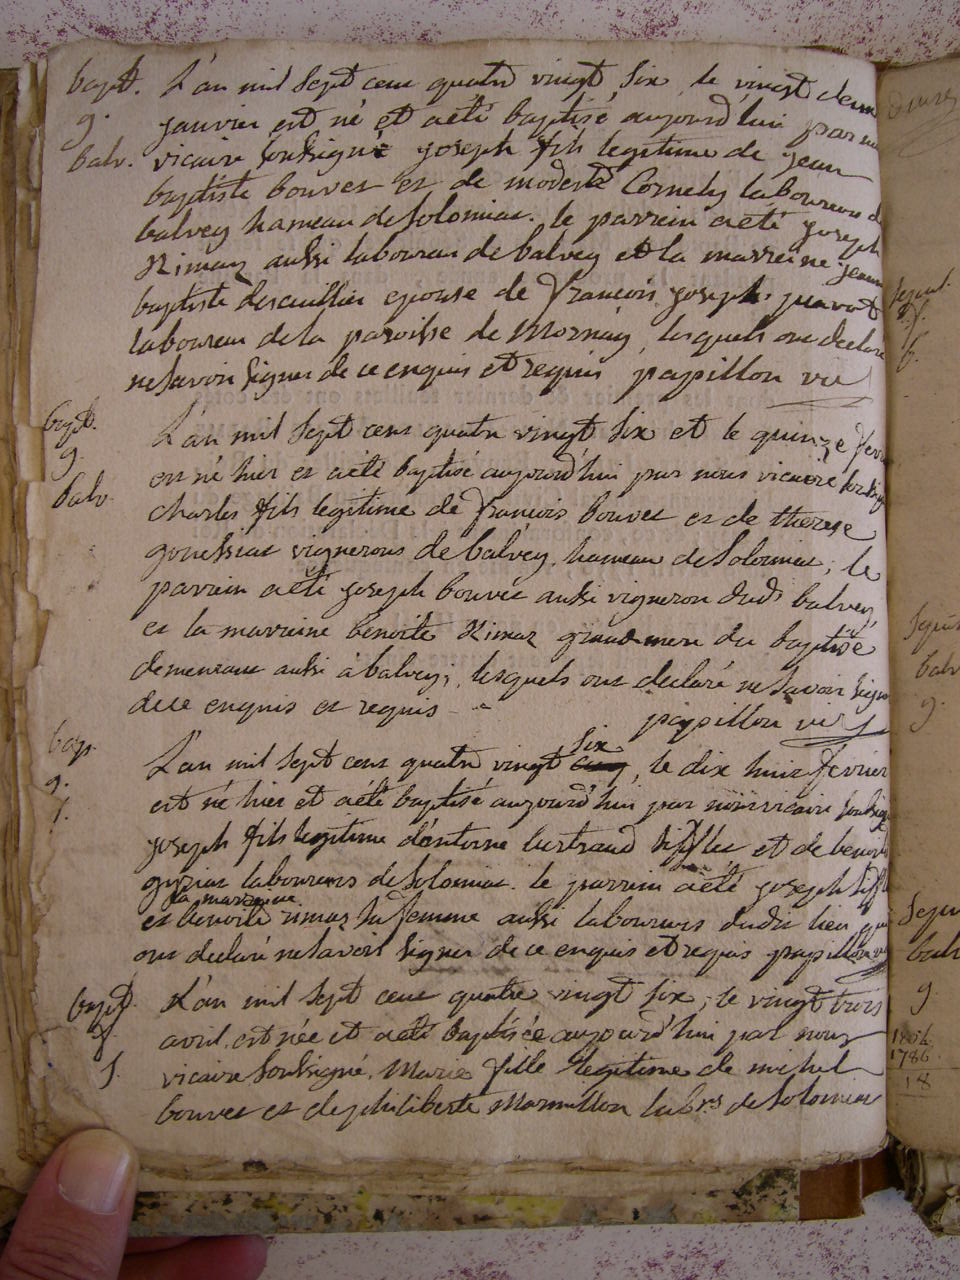 bapt. L'an mil sept cent quatre vingt six, le vingt deux
g. janvier est né et a été baptisé aujourd'hui par nous
balv. vicaire soussigné joseph fils legitime de jean
baptiste bouvet et de modeste Cornely laboureurs de
balvey hameau de solomiac. le parrein a été joseph
Rimaz aussi laboureur de balvey et la marreine jeanne
baptiste descuillier epouse de francois joseph
laboureur de la paroisse de Mornay, lesquels ont declaré
ne savoir signer de ce enquis et requis papillon vic
bapt. L'an mil sept cent quatre vingt six et le quinze fevr
g. est né hier et a été baptisé aujourd'hui par nous vicaire soussigné
balv. charles fils legitime de francois bouvet et de therese
goussiat vignerons de balvey, hameau de solomiac, le
parrein a été joseph bouvet aussi vigneron dud. balvey,
et la marreine benoite Rimaz grand-mere du baptisé
demeurant aussi à balvey, lesquels ont declaré ne savoir signer
de ce enquis et requis papillon vic
bap. L'an mil sept cent quatre vingt cinq six, le dix huit fevrier
g. est né hier et a été baptisé aujourd'hui par nous vicaire soussigné
s. joseph fils legitime d'antoine lustraud sifflet et de benoite
laboureurs de solomiac. le parrein a été joseph siffl
la marreine
et benoite rimaz sa femme aussi laboureurs dudit lieu
ont declaré ne savoir signer de ce enquis et requis papillon vic
bapt. L'an mil sept cent quatre vingt six, le vingt trois
f. avril, est née et a été baptisée aujourd'hui par nous
s. vicaire soussigné, Marie fille legitime de michel
bouvet et de philiberte Marmillon lab.rs de solomiac
sepul.
b.
balv
g.
sepu
balv
g
1786.
18